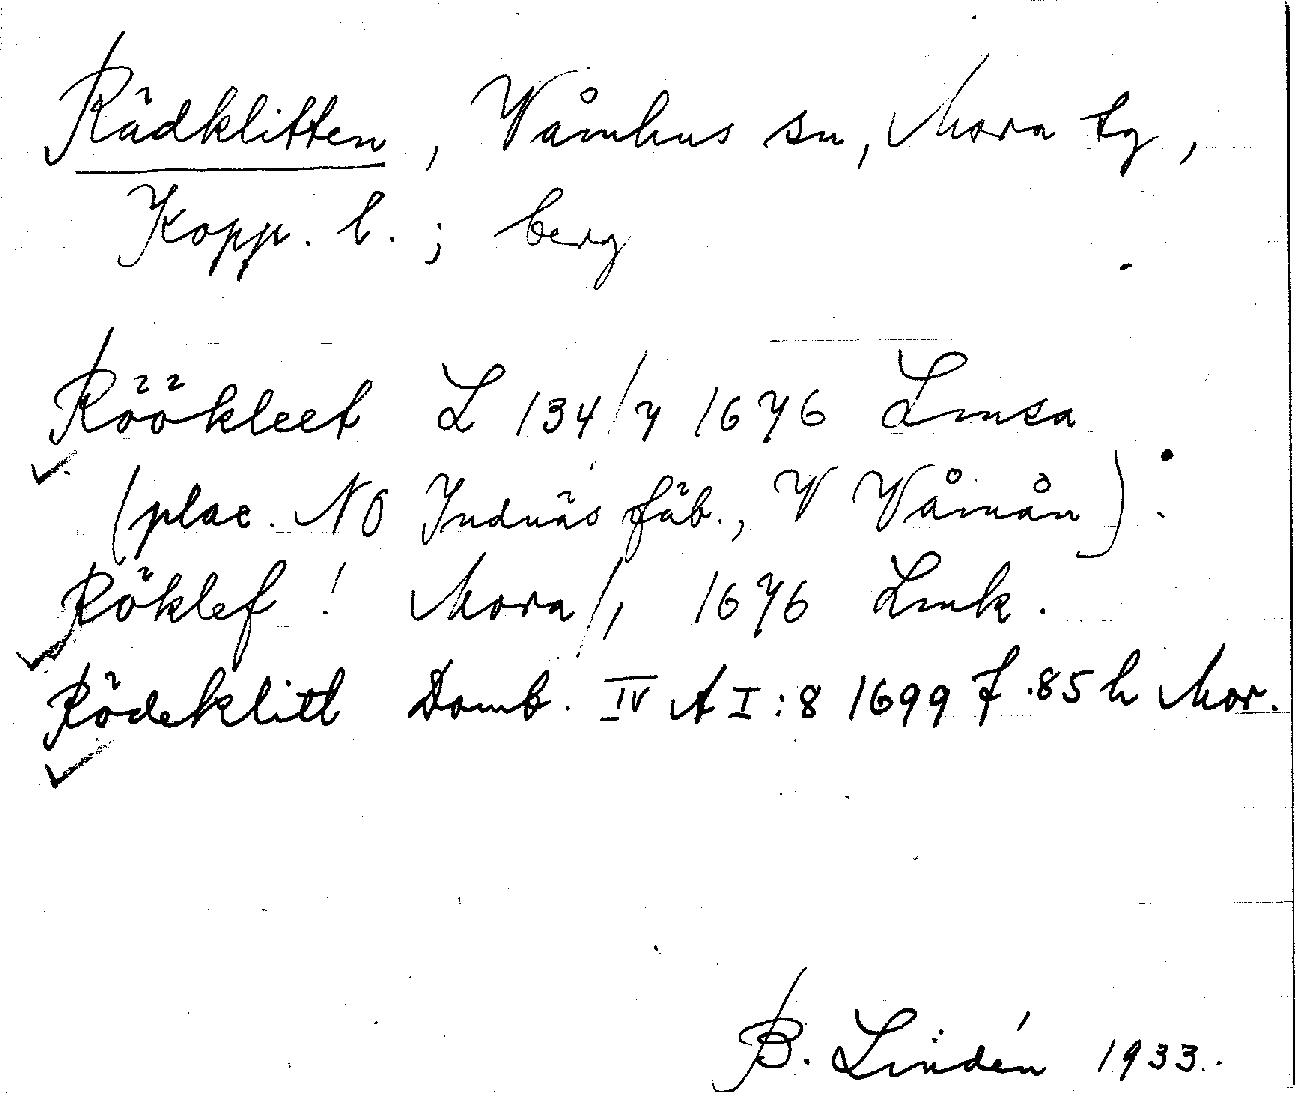 Rädklitten, Våmhus sn, Mora tg,
Kopp. l.; berg
Röökleet L 134/7 1676 Lmsa
(plac. NO Indnäs fäb., V Våmån).
Röklef! Mora/, 1676 Lmk.
Rödeklitt Domb. IV A I:8 1699 f.85 h Mor.
B. Lindén 1933.